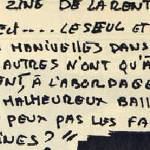 ZINE DE LA RENT
ect.... LE SEUL ET
MANIVELLES DANS
AUTRES N'ONT QU'À
ENT, À L'ABORDAGE
MALHEUREUX BAIL
PEUX PAS LES FA
INES ? "